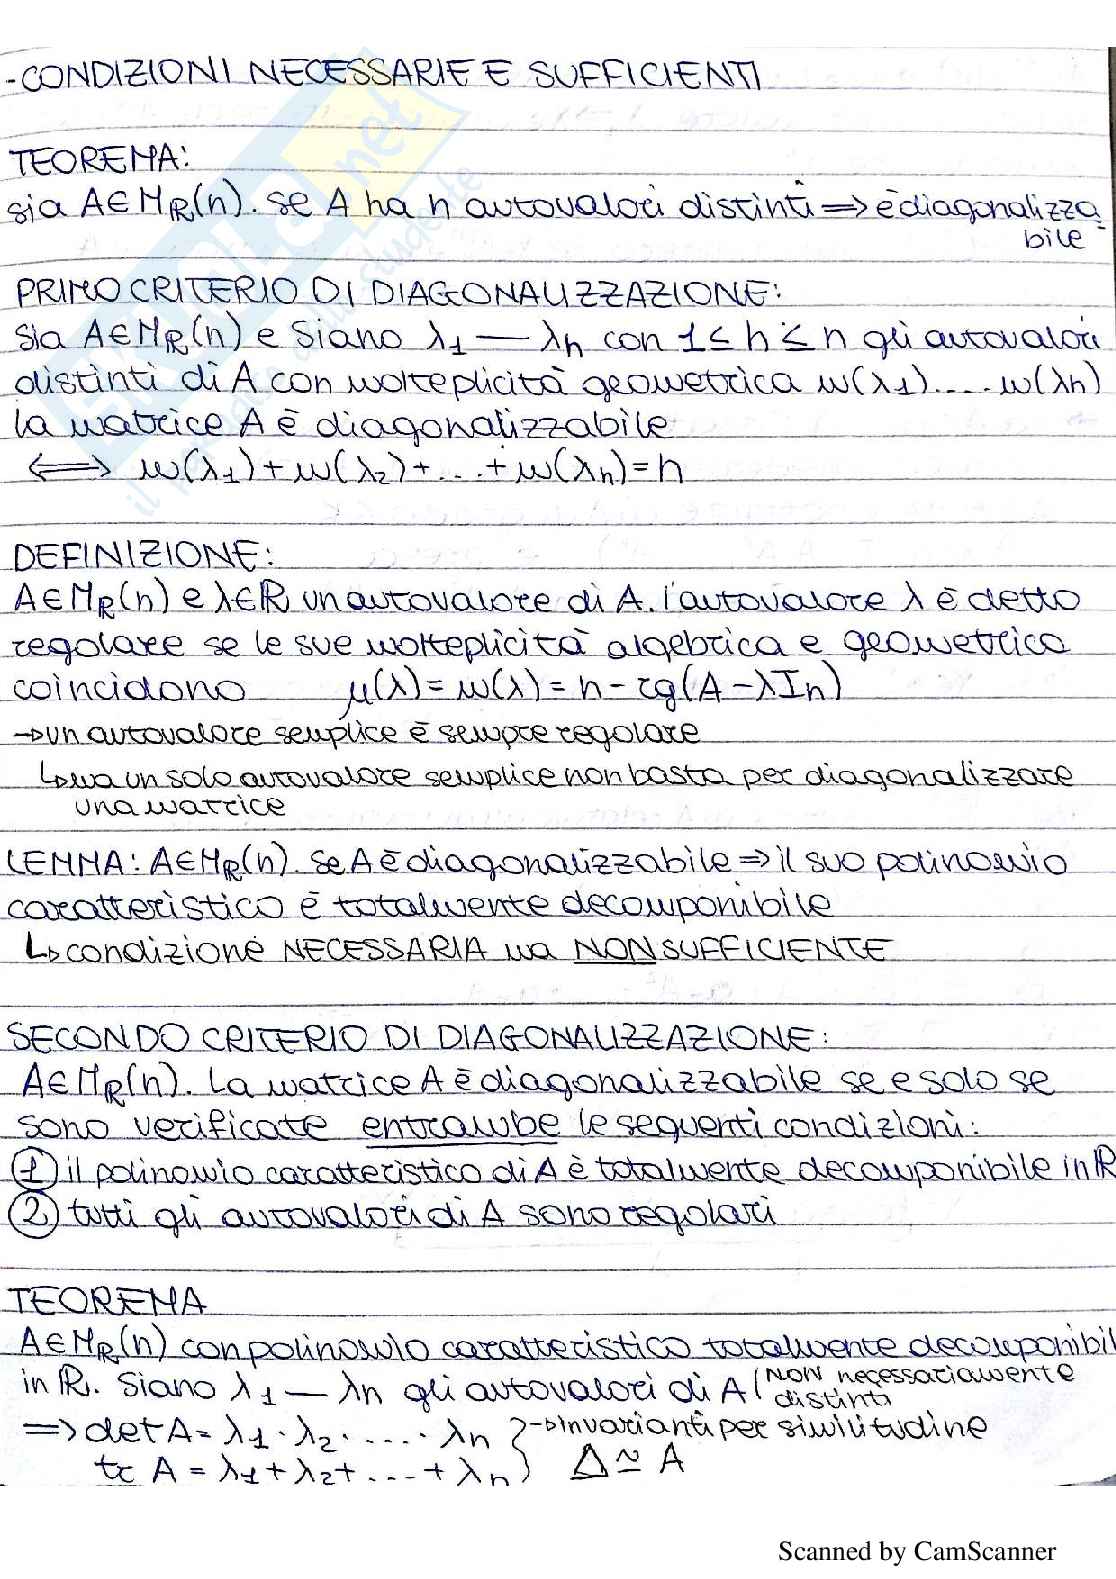 - CONDIZIONI NECESSARIE E SUFFICIENTI
TEOREMA:
sia A∈M_ℝ(n). se A ha n autovalori distinti ⟹ è diagonalizza
bile
PRIMO CRITERIO DI DIAGONALIZZAZIONE:
Sia A∈M_ℝ(n) e Siano λ1 — λh con 1 ≤ h ≤ n gli autovalori
distinti di A con molteplicità geometrica m(λ1).... m(λh)
la matrice A è diagonalizzabile
⟺ m(λ1) + m(λ2) + ... + m(λh) = n
DEFINIZIONE:
A∈M_ℝ(n) e λ∈ℝ un autovalore di A. l'autovalore λ è detto
regolare se le sue molteplicità algebrica e geometrica
coincidono μ(λ) = m(λ) = n - rg(A - λIn)
→ un autovalore semplice è sempre regolare
↳ ma un solo autovalore semplice non basta per diagonalizzare
una matrice
LEMMA: A∈M_ℝ(n). Se A è diagonalizzabile ⇒ il suo polinomio
caratteristico è totalmente decomponibile
↳ condizione NECESSARIA ma NON SUFFICIENTE
SECONDO CRITERIO DI DIAGONALIZZAZIONE:
A∈M_ℝ(n). La matrice A è diagonalizzabile se e solo se
sono verificate entrambe le seguenti condizioni:
① il polinomio caratteristico di A è totalmente decomponibile in ℝ
② tutti gli autovalori di A sono regolari
TEOREMA
A∈M_ℝ(n) con polinomio caratteristico totalmente decomponibil
in ℝ. Siano λ1 — λn gli autovalori di A (NON necessariamente
distinti
⟹ det A = λ1 · λ2 · .... · λn } → Invarianti per similitudine
tr A = λ1 + λ2 + ... + λn } Δ ≃ A
Scanned by CamScanner
SKUOLA.net
il portale dello studente